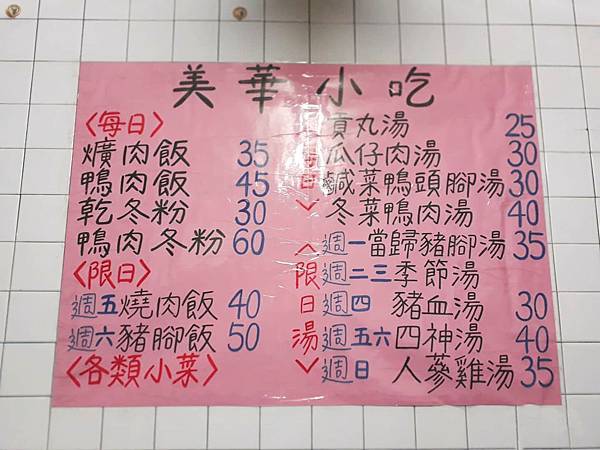 美華小吃
〈每日〉
爌肉飯 35
鴨肉飯 45
乾冬粉 30
鴨肉冬粉 60
〈限日〉
週五燒肉飯 40
週六豬腳飯 50
〈各類小菜〉
〈每日〉
貢丸湯 25
瓜仔肉湯 30
鹹菜鴨頭腳湯 30
冬菜鴨肉湯 40
〈限日湯〉
週一當歸豬腳湯 35
週二三季節湯
週四 豬血湯 30
週五六四神湯 40
週日 人蔘雞湯 35